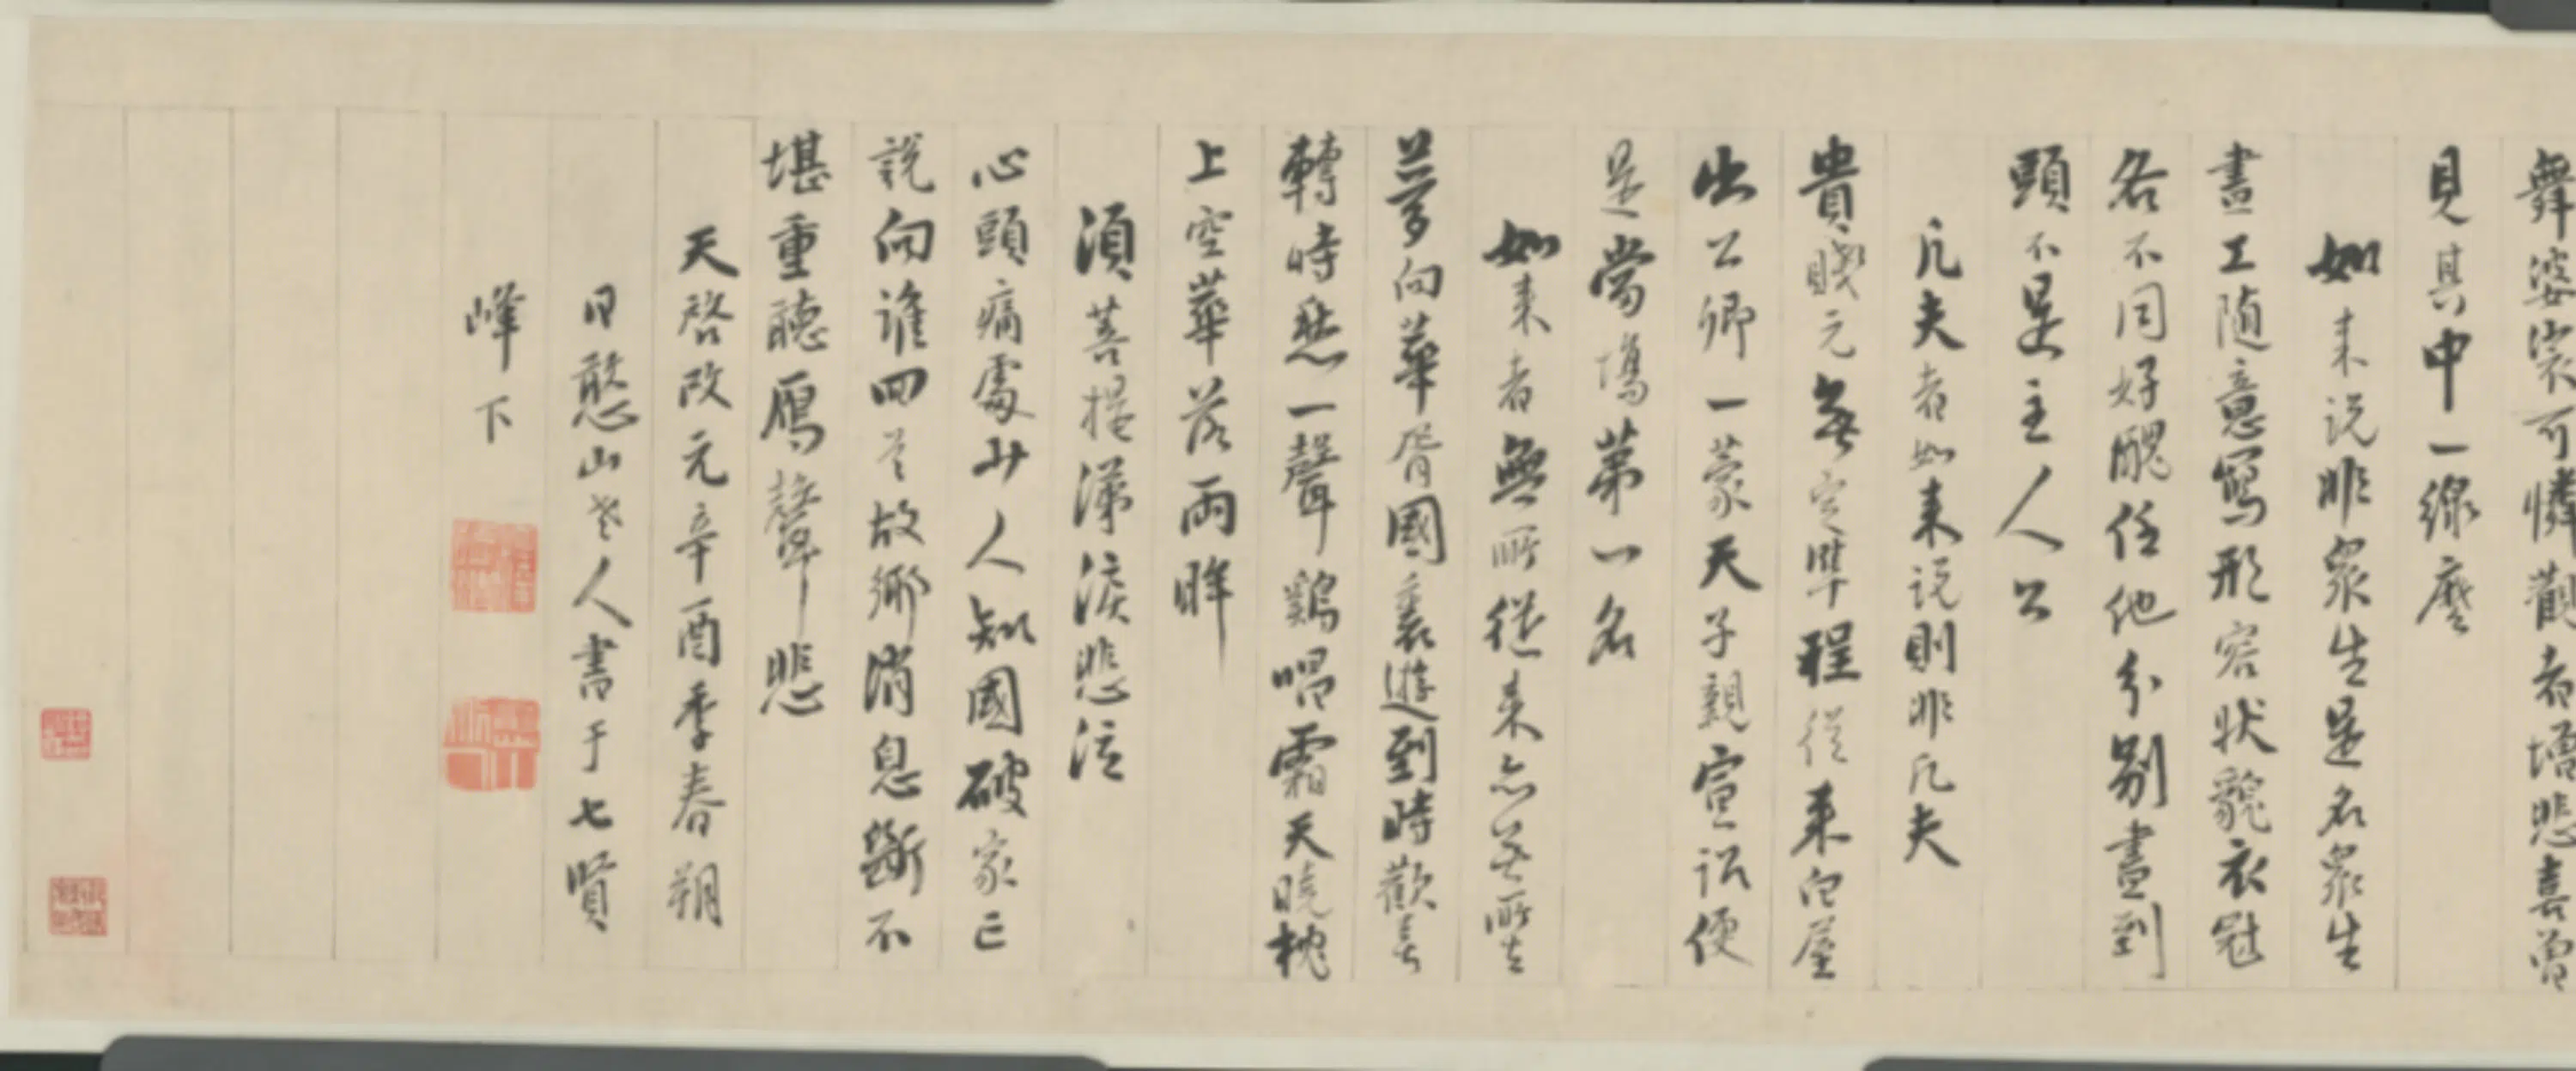 舞婆娑可憐觀者增悲喜曾
見其中一線麼
如来说非衆生是名衆生
畫工随意寫形容状貌衣冠
各不同好醜任他分别畫到
頭不是主人公
凡夫者如来说則非凡夫
貴賤元無定準程從来白屋
出公卿一蒙天子親宣詔便
是當場第一名
如来者無所從来亦無所去
夢向華胥國裏遊到時歡喜
轉時愁一聲鷄唱霜天曉枕
上空華落兩眸
須菩提涕淚悲泣
心頭痛處少人知國破家亡
說向誰四望故鄉消息斷不
堪重聽鴈聲悲
天啓改元辛酉季春朔
日憨山老人書于七賢
峰下